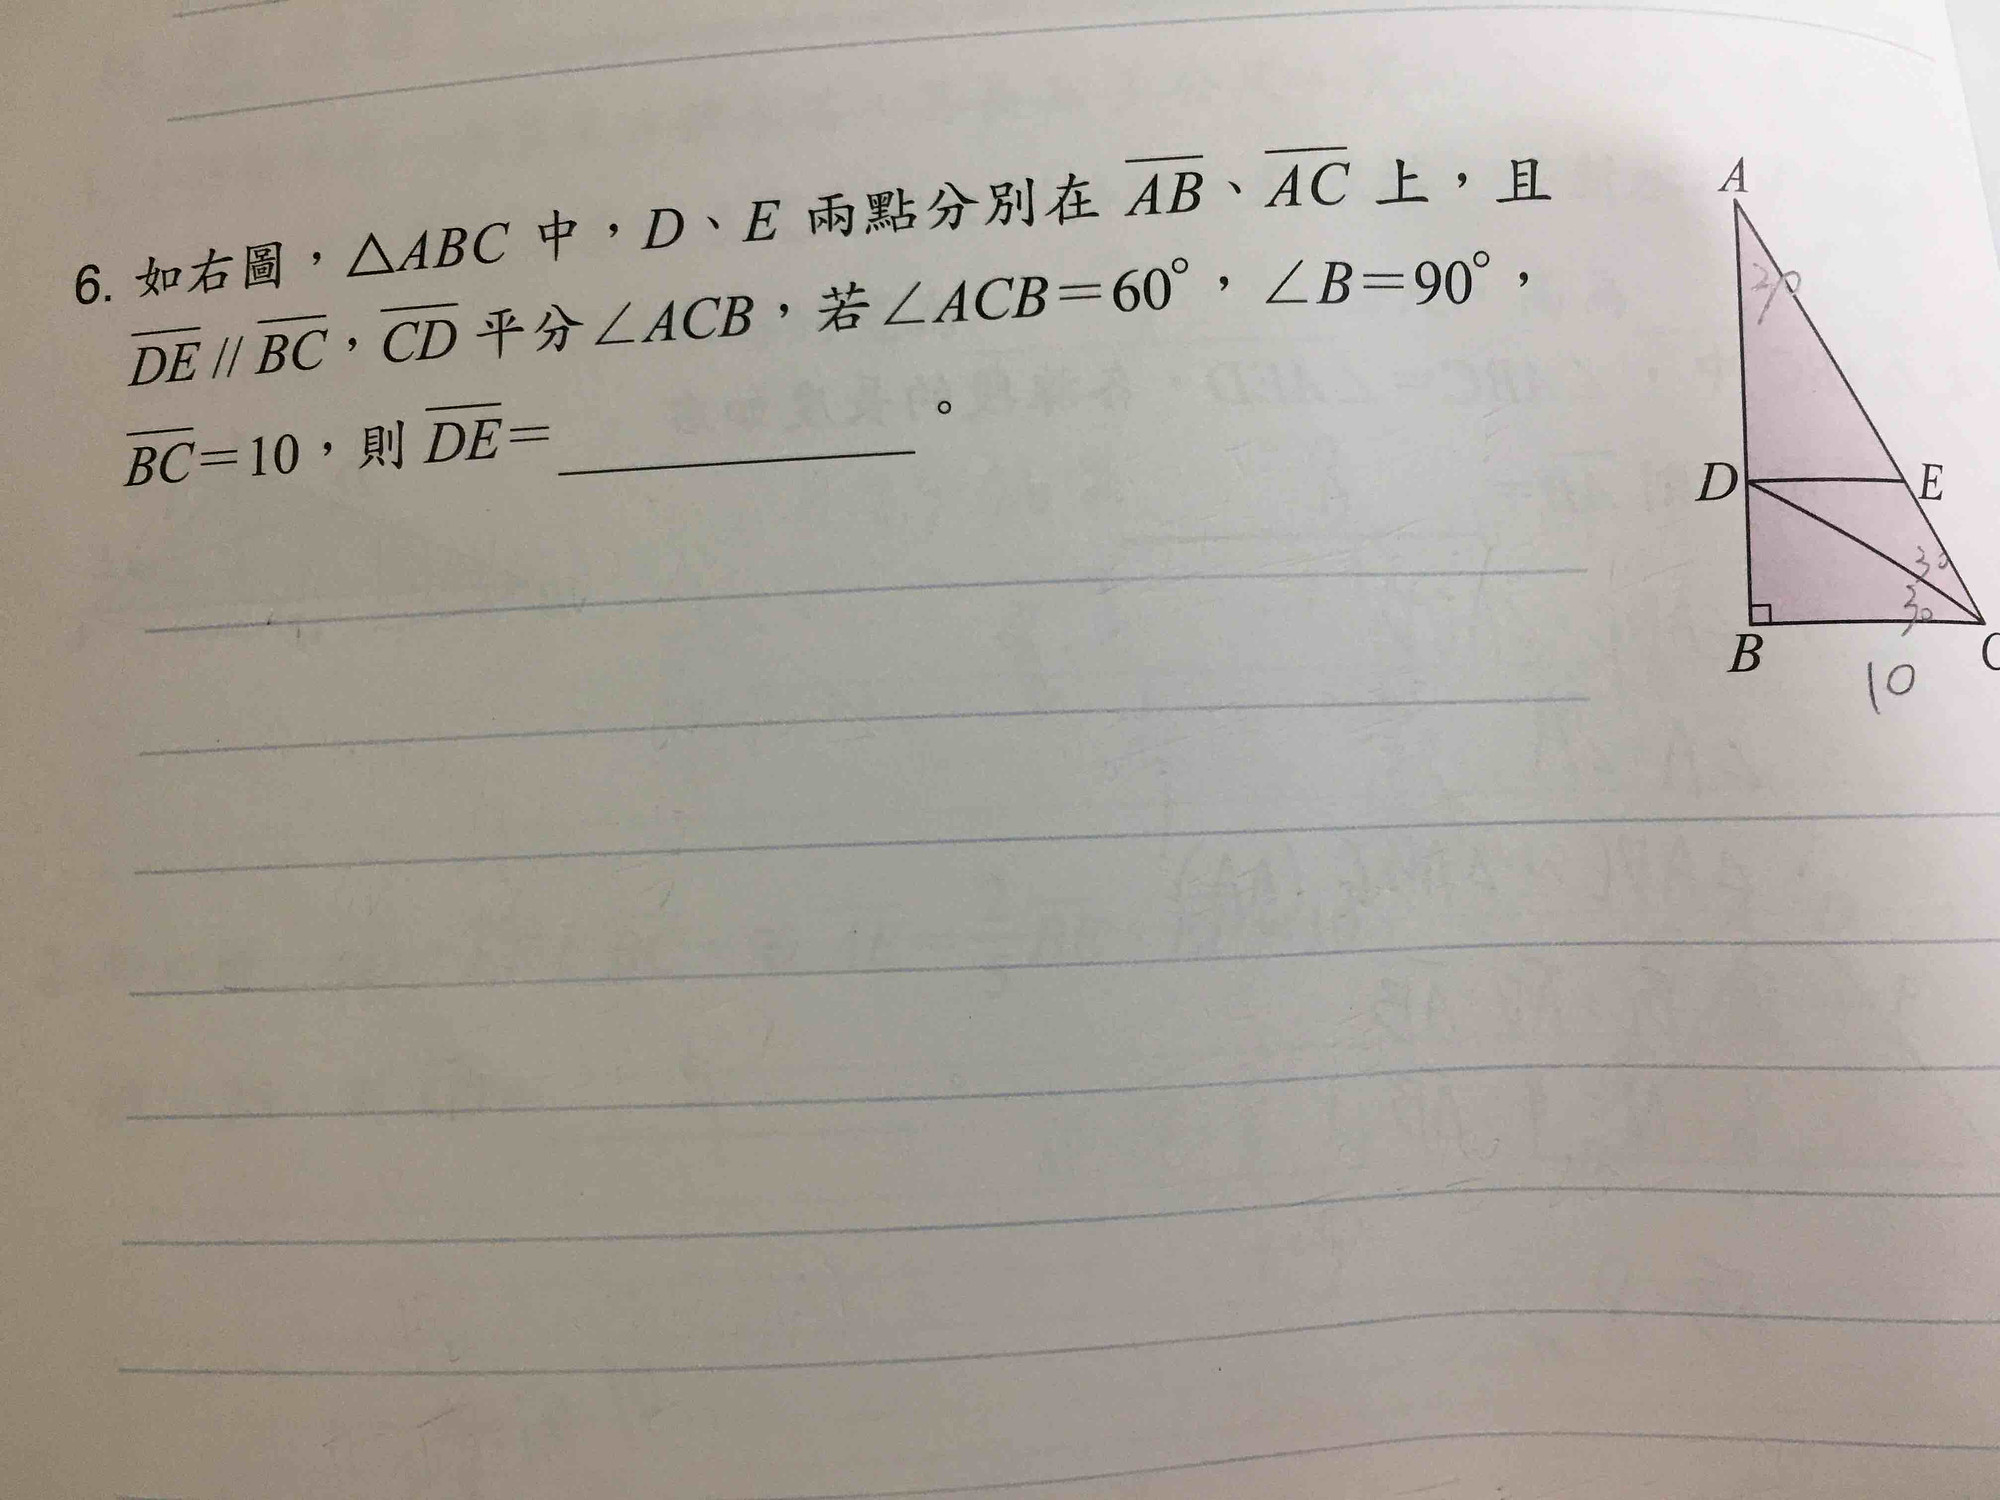 6. 如右圖，△ABC 中，D、E 兩點分別在 AB、AC 上，且
DE // BC，CD 平分∠ACB，若∠ACB=60°，∠B=90°，
BC=10，則 DE=＿＿＿＿＿＿。
A
30
D
E
30
30
B
C
10